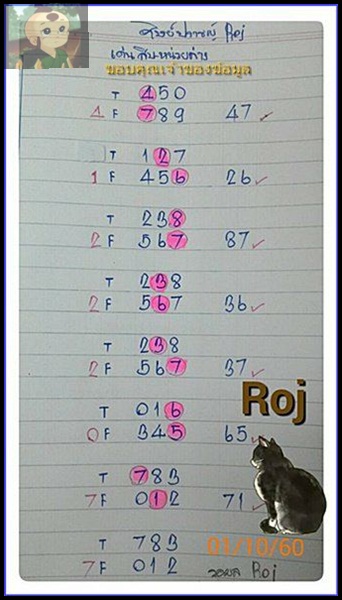 เด่นสิบหน่วยล่าง
ขอบคุณเจ้าของข้อมูล
T 450
4 F 789 47 ✓
T 127
1 F 456 26 ✓
T 238
2 F 567 87 ✓
T 238
2 F 567 36 ✓
T 238
2 F 567 37 ✓
T 016
0 F 345 65 ✓
Roj
T 783
7 F 012 71 ✓
T 783 01/10/60
7 F 012 Roj